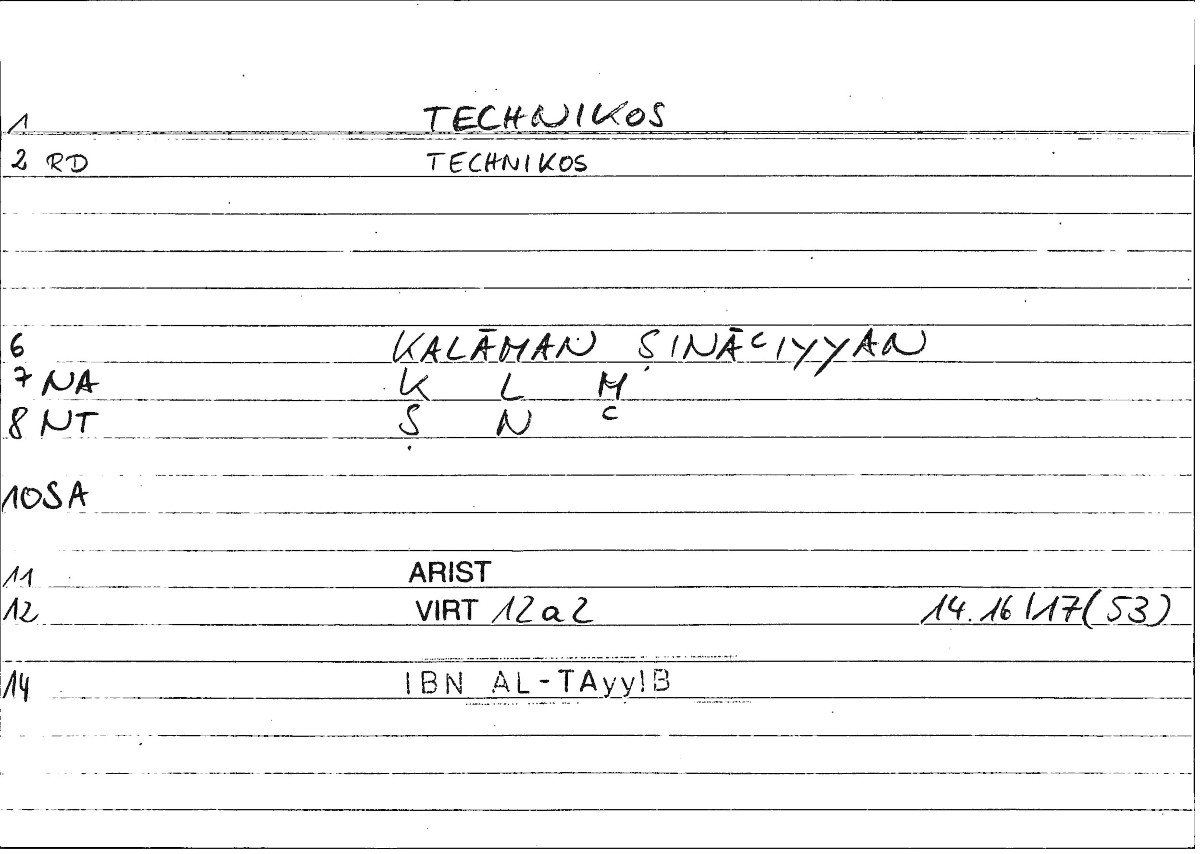 1 TECHNIKOS
2 RD TECHNIKOS
6 KALĀMAN ṢINĀCIYYAN
7 NA K L M
8 NT Ṣ N C
10 SA
11 ARIST
12 VIRT 12a2 14.16/17(53)
14 IBN AL-TAyyIB